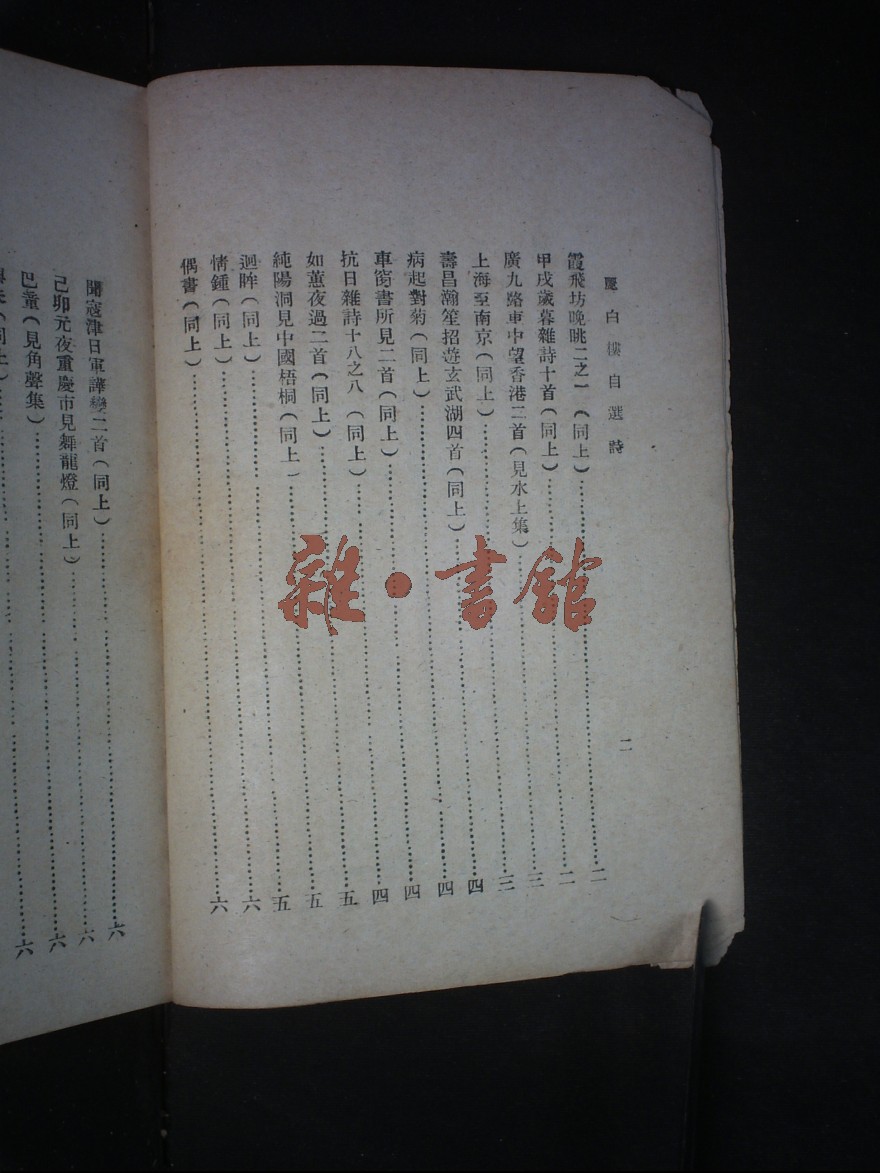 白樓自選詩
二
霞飛坊晚眺二之一（同上）……二
甲戌歲暮雜詩十首（同上）……二
廣九路車中望香港二首（見水上集）……三
上海至南京（同上）……三
壽昌瀚笙招遊玄武湖四首（同上）……四
病起對菊（同上）……四
車窗書所見二首（同上）……四
抗日雜詩十八之八（同上）……四
如蕙夜過二首（同上）……五
純陽洞見中國梧桐（同上）……五
迴眸（同上）……五
情鍾（同上）……六
偶書（同上）……六
聞寇津日軍譁變二首（同上）……六
己卯元夜重慶市見舞龍燈（同上）……六
巴童（見角聲集）……六
同上）
雜·書館